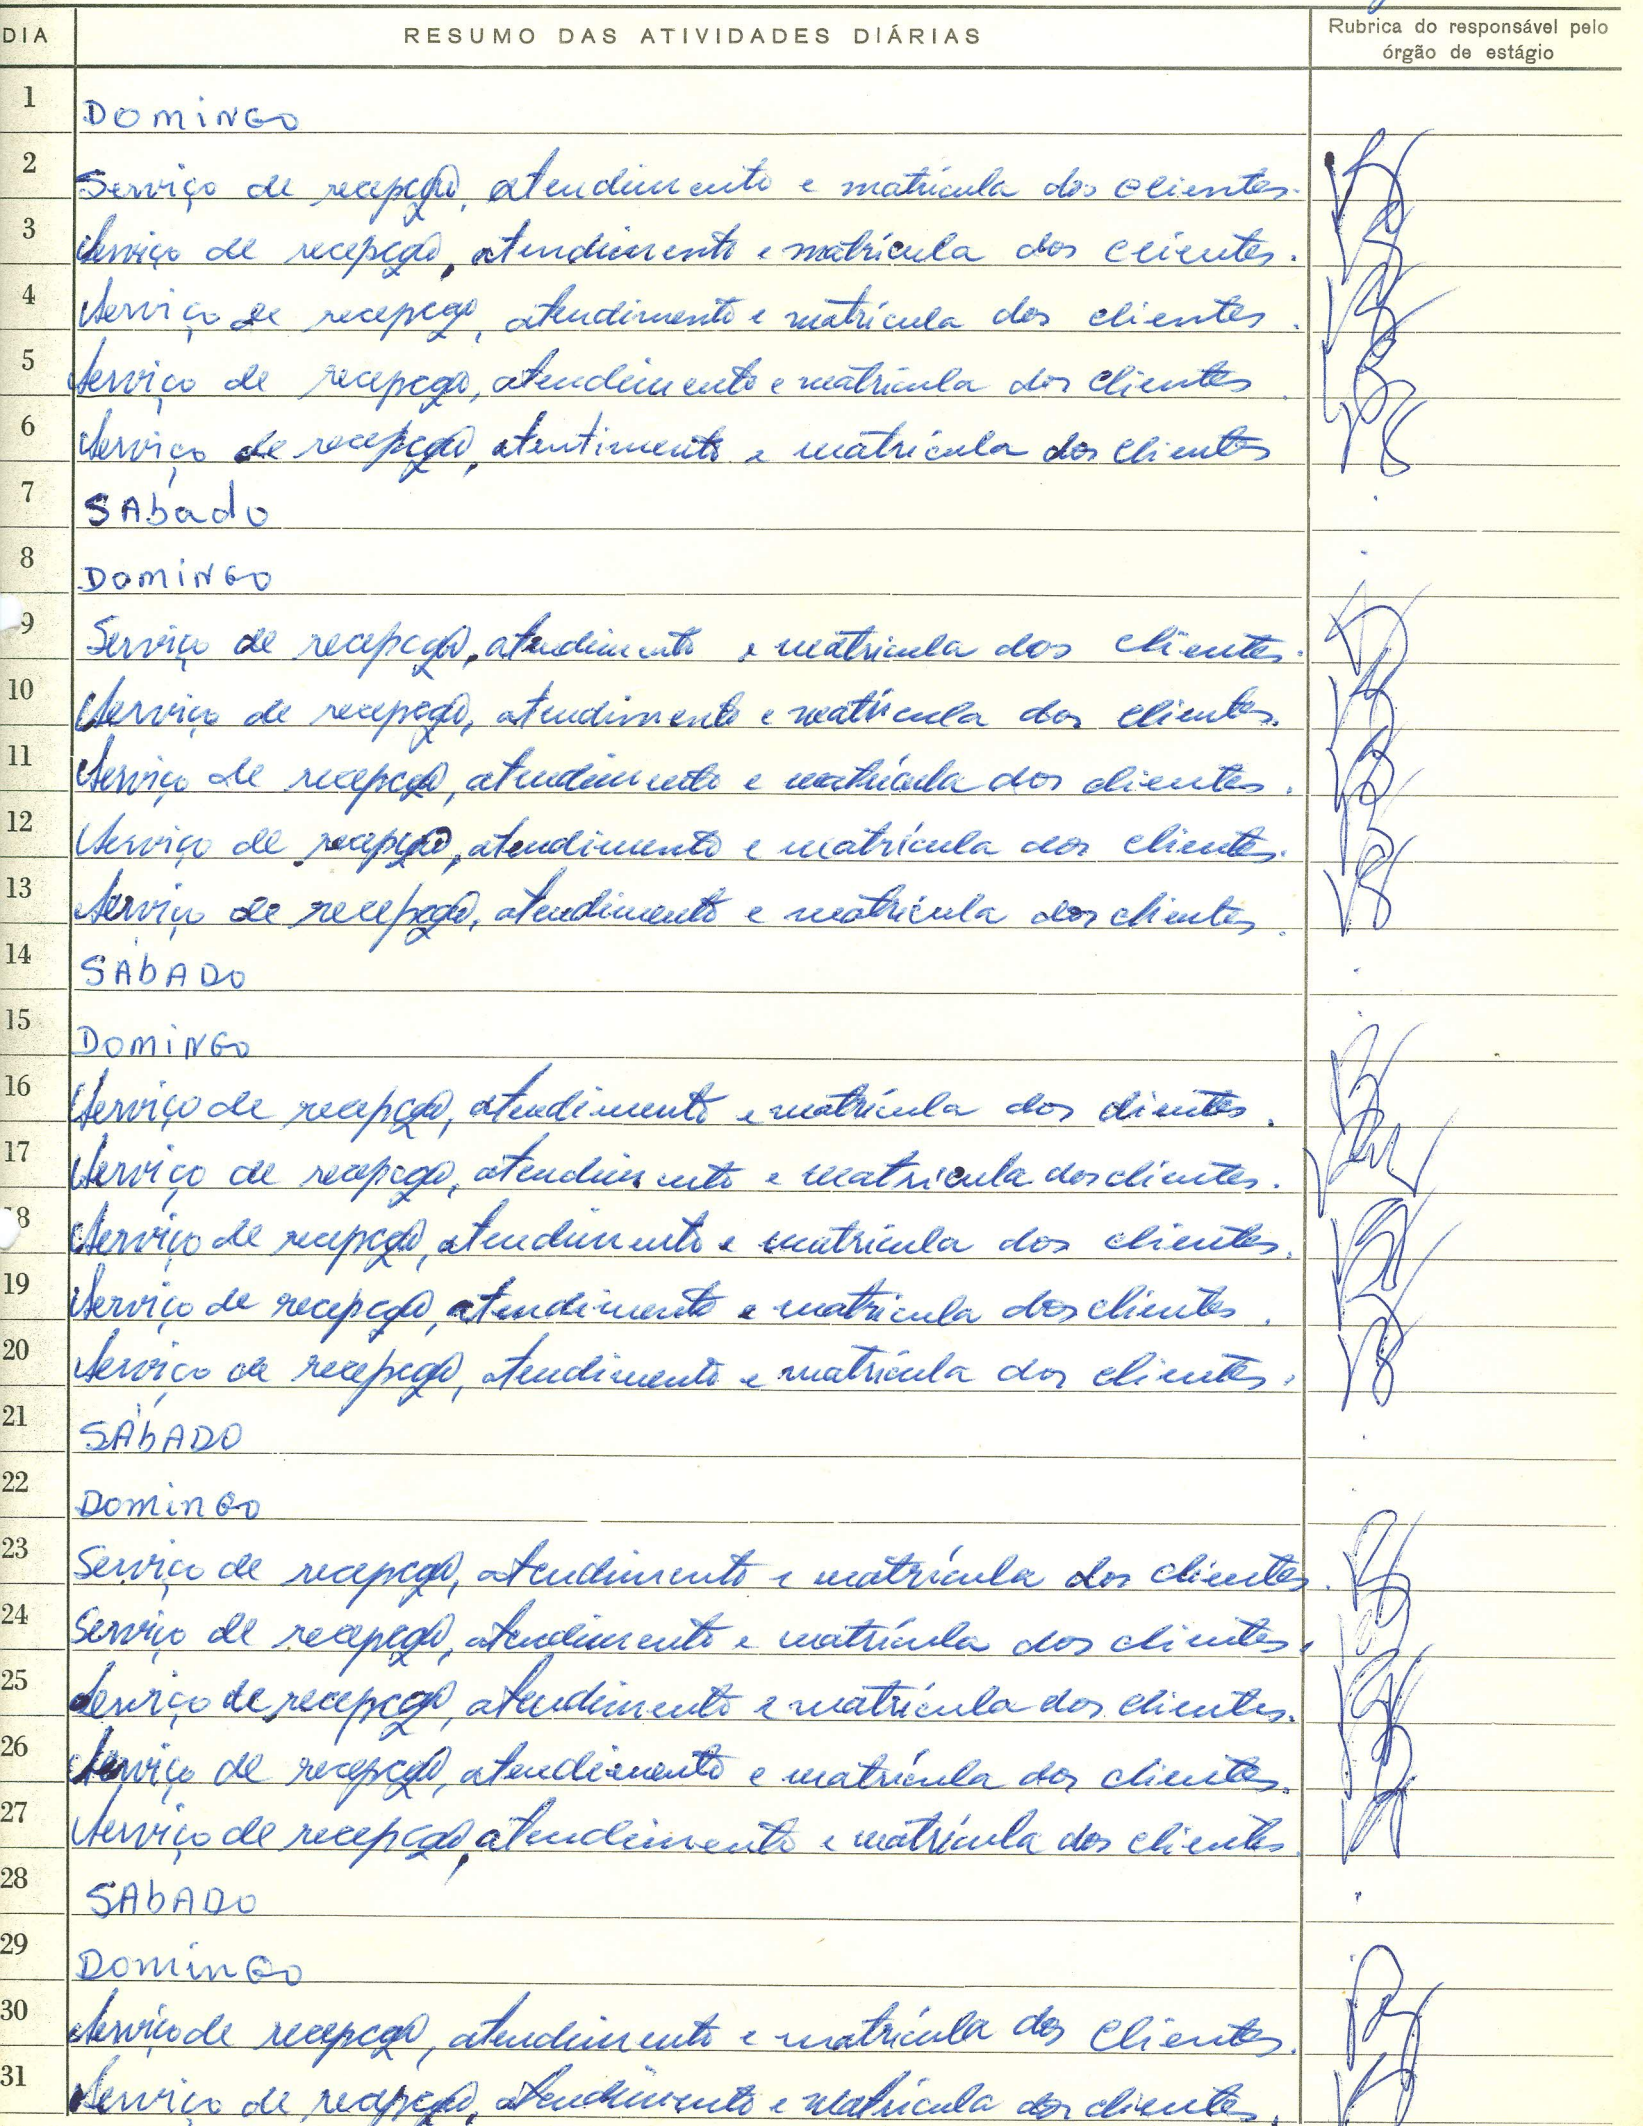 DIA RESUMO DAS ATIVIDADES DIÁRIAS Rubrica do responsável pelo
órgão de estágio
1 DOMINGO
2 Serviço de recepção, atendimento e matrícula dos clientes.
3 Serviço de recepção, atendimento e matrícula dos clientes.
4 Serviço de recepção, atendimento e matrícula dos clientes.
5 Serviço de recepção, atendimento e matrícula dos clientes.
6 Serviço de recepção, atentimento e matrícula dos clientes
7 SÁbado
8 DOMINGO
9 Serviço de recepção, atendimento e matrícula dos clientes.
10 Serviço de recepção, atendimento e matrícula dos clientes.
11 Serviço de recepção, atendimento e matrícula dos clientes.
12 Serviço de recepção, atendimento e matrícula dos clientes.
13 Serviço de recepção, atendimento e matrícula dos clientes.
14 SÁbADO
15 DOMINGO
16 Serviço de recepção, atendimento e matrícula dos clientes.
17 Serviço de recepção, atendimento e matricula dos clientes.
18 Serviço de recepção, atendimento e matrícula dos clientes.
19 Serviço de recepção, atendimento e matrícula dos clientes.
20 Serviço de recepção, atendimento e matrícula dos clientes.
21 SÁbADO
22 DOMINGO
23 Serviço de recepção, atendimento e matrícula dos clientes.
24 Serviço de recepção, atendimento e matrícula dos clientes.
25 Serviço de recepção, atendimento e matrícula dos clientes.
26 Serviço de recepção, atendimento e matrícula dos clientes.
27 Serviço de recepção, atendimento e matrícula dos clientes.
28 SAbADO
29 DOMINGO
30 Serviço de recepção, atendimento e matrícula dos clientes.
31 Serviço de recepção, atendimento e matrícula dos clientes.